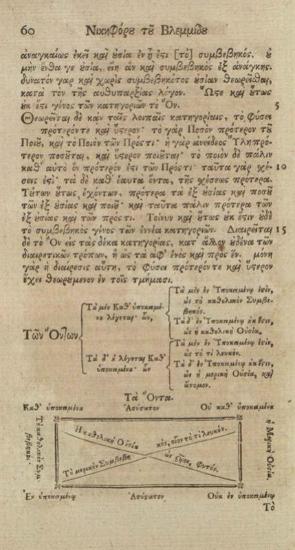 60 Νικηφόρου τοῦ Βλεμμίδου
ἀναγκαίως ἐκεῖ καὶ οὐσία ἐν ᾗ ἐστι [τὸ] συμβεβηκός. οὐ
μὴν ἔνθα γε οὐσία, εἴη ἂν καὶ συμβεβηκὸς ἐξ ἀνάγκης.
δυνατὸν γὰρ καὶ χωρὶς συμβεβηκότος οὐσίαν θεωρεῖσθαι,
κατὰ τὸν τῆς αὐθυπαρξίας λόγον. Ὥστε καὶ οὕτως
οὐκ ἔστι γένος τῶν κατηγοριῶν τὸ Ὄν. 5
Θεωρεῖται δὲ κἀν ταῖς λοιπαῖς κατηγορίαις, τὸ Φύσει
πρότερόν τε καὶ ὕστερον· τὸ γὰρ Ποσὸν πρότερον τοῦ
Ποιοῦ, καὶ τὸ Ποιὸν τῶν Πρός τι· ἡ γὰρ ἀνείδεος Ὕλη πρό-
τερον ποσοῦται, καὶ ὕστερον ποιοῦται· τὸ ποιὸν δὲ πάλιν
καθ' αὑτὸ ὂν πρότερόν ἐστι τῶν Πρός τι· ταῦτα γὰρ σχέ- 10
σεις εἰσί· τὰ δὲ καθ' ἑαυτὰ ὄντα, τῆς σχέσεως πρότερα.
Τούτων οὕτως ἐχόντων, πρότερα τὰ ἐξ οὐσίας καὶ ποσοῦ
τῶν ἐξ οὐσίας καὶ ποιοῦ· καὶ ταῦτα πάλιν πρότερα τῶν
ἐξ οὐσίας καὶ τῶν πρός τι. Τοίνυν καὶ οὕτως οὐκ ἔστιν οὐδὲ
τὸ συμβεβηκὸς γένος τῶν ἐννέα κατηγοριῶν. Διαιρεῖται 15
δὲ τὸ Ὂν εἰς τὰς δέκα κατηγορίας, κατ' ἄλλον οὐδένα τῶν
διαιρετικῶν τρόπων, ἢ ὡς τὰ ἀφ' ἑνὸς καὶ πρὸς ἕν. μόνη
γὰρ ἡ διαίρεσις αὕτη, τὸ Φύσει πρότερόν τε καὶ ὕστερον
ἔχει θεωρούμενον ἐν τοῖς τμήμασι.
Τῶν Ὄντων
Τὰ μὲν Καθ' ὑποκειμέ-
νου λέγεται· ὧν,
Τὰ μὲν ἐν Ὑποκειμένῳ ἐστίν,
ὡς τὸ καθολικὸν Συμβε-
βηκός.
Τὰ δ' ἐν Ὑποκειμένῳ οὐκ ἔστιν,
ὡς ἡ καθολικὴ Οὐσία.
Τὰ δ' οὐ λέγεται Καθ'
ὑποκειμένου· ὧν
Τὰ μὲν ἐν Ὑποκειμένῳ ἐστίν,
ὡς τὸ τὶ λευκόν.
Τὰ δ' ἐν Ὑποκειμένῳ οὐκ ἔστιν,
ὡς ἡ μερικὴ Οὐσία, καὶ
ἄτομον.
Τὰ Ὄντα.
Καθ' ὑποκειμένου Ἀσύστατον Οὐ καθ' ὑποκειμένου
Τὸ καθολικὸν Συμ-
βεβηκός.
Ἡ καθολικὴ Οὐσία
κὸς, οἷον τὸ τὶ λευκόν.
Τὸ μερικὸν Συμβεβη
ὡς ζῷον, Φυτόν.
ἡ Μερικὴ Οὐσία.
Ἐν ὑποκειμένῳ Ἀσύστατον Οὐκ ἐν ὑποκειμένῳ
Τὸ